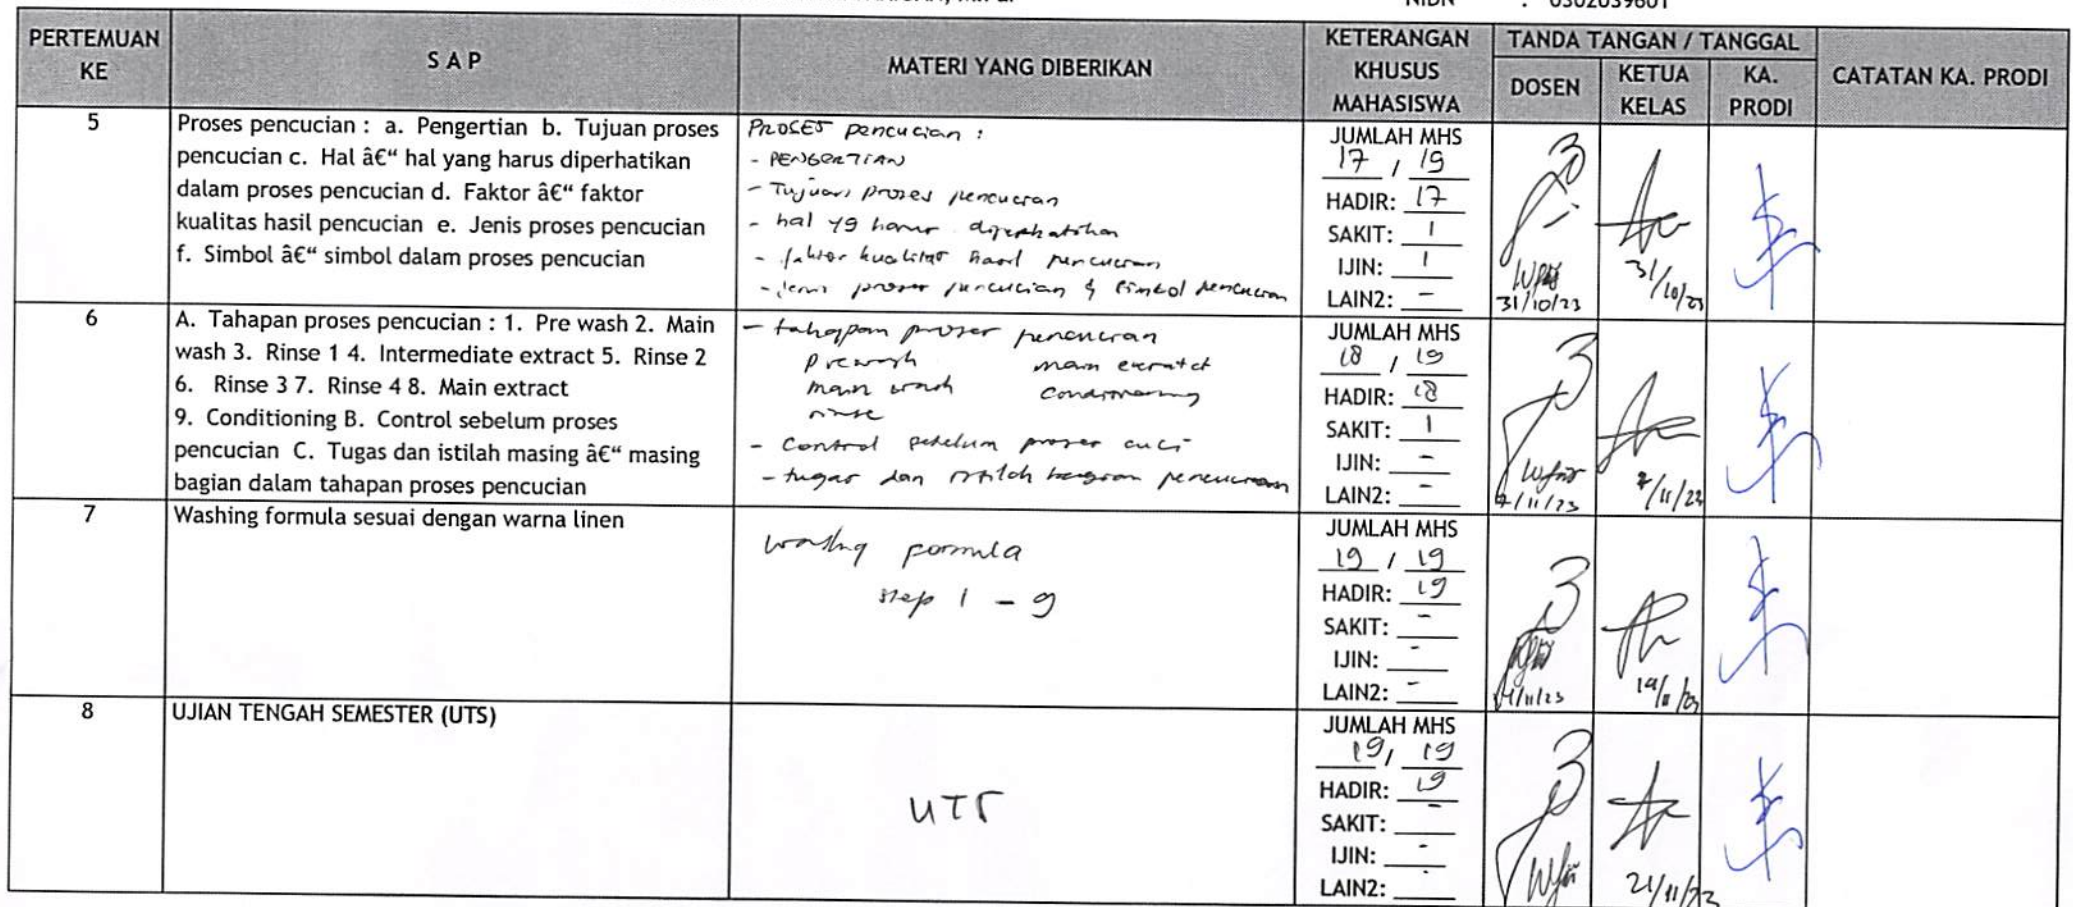 NIDN : 0302039601
PERTEMUAN KE
S A P
MATERI YANG DIBERIKAN
KETERANGAN KHUSUS MAHASISWA
TANDA TANGAN / TANGGAL
DOSEN
KETUA KELAS
KA. PRODI
CATATAN KA. PRODI
5
Proses pencucian : a. Pengertian b. Tujuan proses
pencucian c. Hal â€“ hal yang harus diperhatikan
dalam proses pencucian d. Faktor â€“ faktor
kualitas hasil pencucian e. Jenis proses pencucian
f. Simbol â€“ simbol dalam proses pencucian
PROSES pencucian :
- PENGERTIAN
- Tujuan proses pencucian
- hal yg harus diperhatikan
- faktor kualitas hasil pencucian
- jenis proses pencucian & simbol pencucian
JUMLAH MHS
17 / 19
HADIR: 17
SAKIT: 1
IJIN: 1
LAIN2: -
31/10/23
31/10/23
6
A. Tahapan proses pencucian : 1. Pre wash 2. Main
wash 3. Rinse 1 4. Intermediate extract 5. Rinse 2
6. Rinse 3 7. Rinse 4 8. Main extract
9. Conditioning B. Control sebelum proses
pencucian C. Tugas dan istilah masing â€“ masing
bagian dalam tahapan proses pencucian
- tahapan proses pencucian
prewash main extract
main wash conditioning
rinse
- Control sebelum proses cuci
- tugas dan istilah bagian pencucian
JUMLAH MHS
18 / 19
HADIR: 18
SAKIT: 1
IJIN: -
LAIN2: -
7/11/23
7/11/23
7
Washing formula sesuai dengan warna linen
washing formula
step 1 - 9
JUMLAH MHS
19 / 19
HADIR: 19
SAKIT: -
IJIN: -
LAIN2: -
14/11/23
14/11/23
8
UJIAN TENGAH SEMESTER (UTS)
UTS
JUMLAH MHS
19 / 19
HADIR: 19
SAKIT: -
IJIN: -
LAIN2:
21/11/23